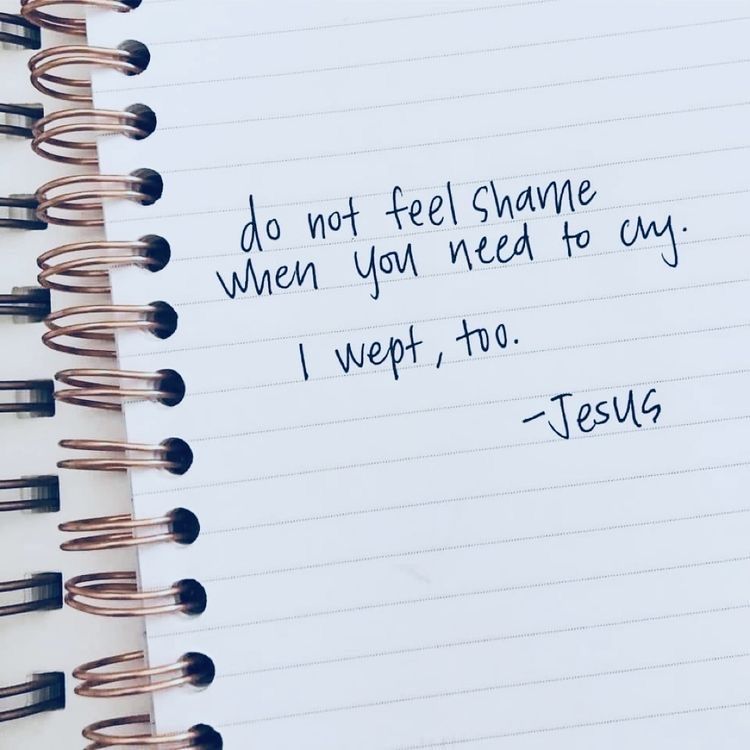 do not feel shame
when you need to cry.
I wept, too.
-Jesus